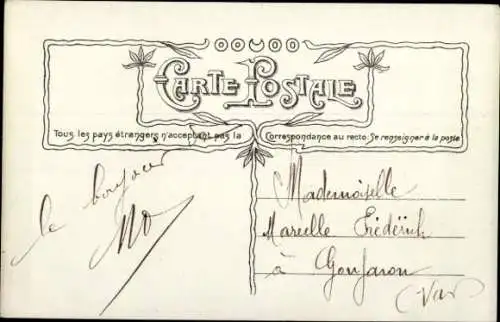 CARTE POSTALE
Tous les pays étrangers n'acceptant pas la Correspondance au recto: Se renseigner à la poste
le bonjour
Mademoiselle
Marcelle Frédérich
à Gonfaron
(Var)